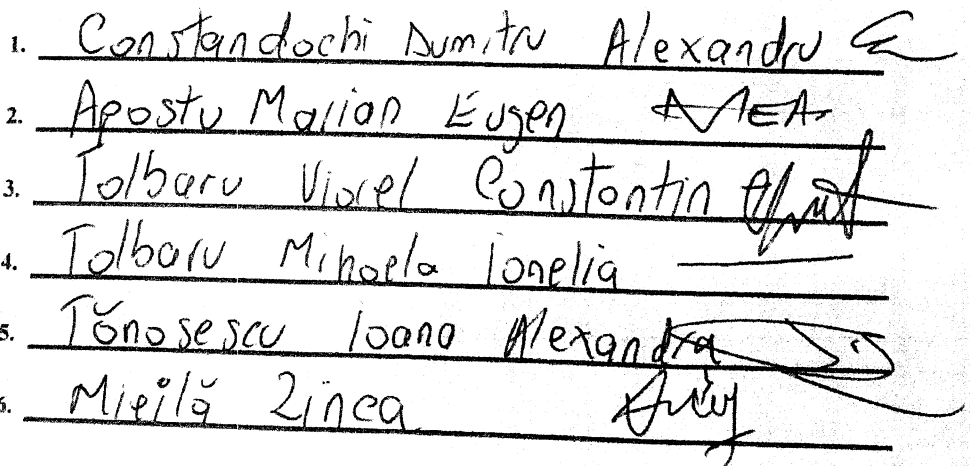 1. Constandochi Dumitru Alexandru
2. Apostu Marian Eugen
3. Tolbaru Viorel Constantin
4. Tolbaru Mihaela Ionelia
5. Tănăsescu Ioana Alexandra
6. Mirilă Zinca